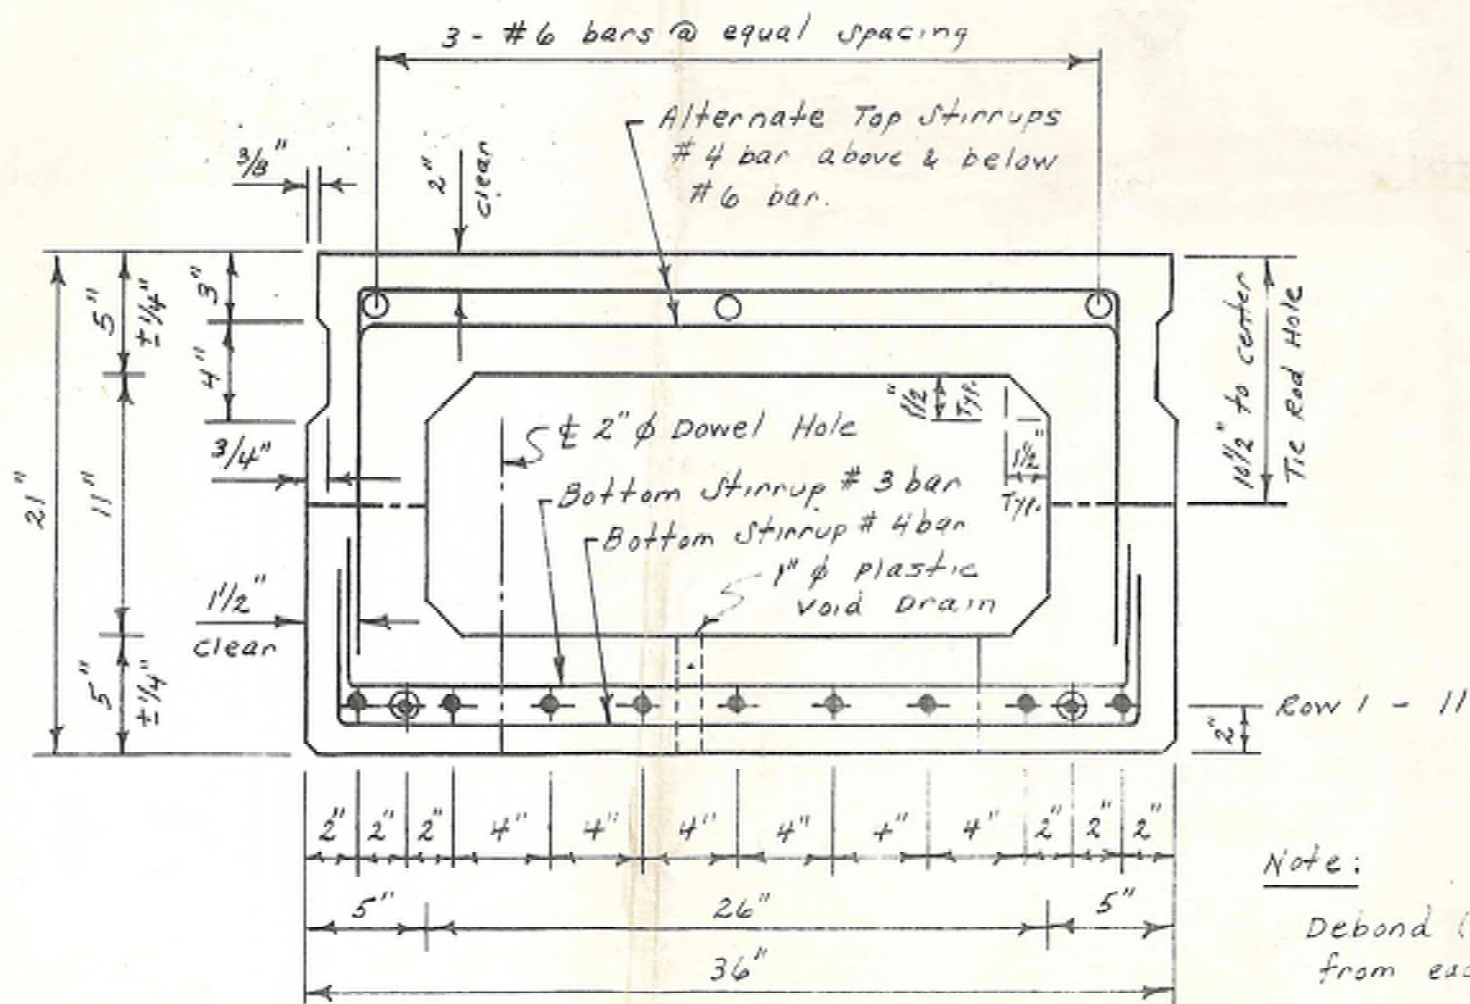 3 - #6 bars @ equal spacing
Alternate Top Stirrups
#4 bar above & below
#6 bar.
3/8"
2"
clear
5"
±1/4"
3"
4"
21"
11"
3/4"
1 1/2"
clear
5"
±1/4"
℄ 2" φ Dowel Hole
1 1/2"
Typ.
1 1/2"
Typ.
Bottom Stirrup #3 bar
Bottom Stirrup #4 bar
1" φ plastic
void Drain
10 1/2" to center
Tie Rod Hole
Row 1 - 11
2"
2" 2" 2" 4" 4" 4" 4" 4" 4" 2" 2" 2"
5" 26" 5"
36"
Note:
Debond (
from eac